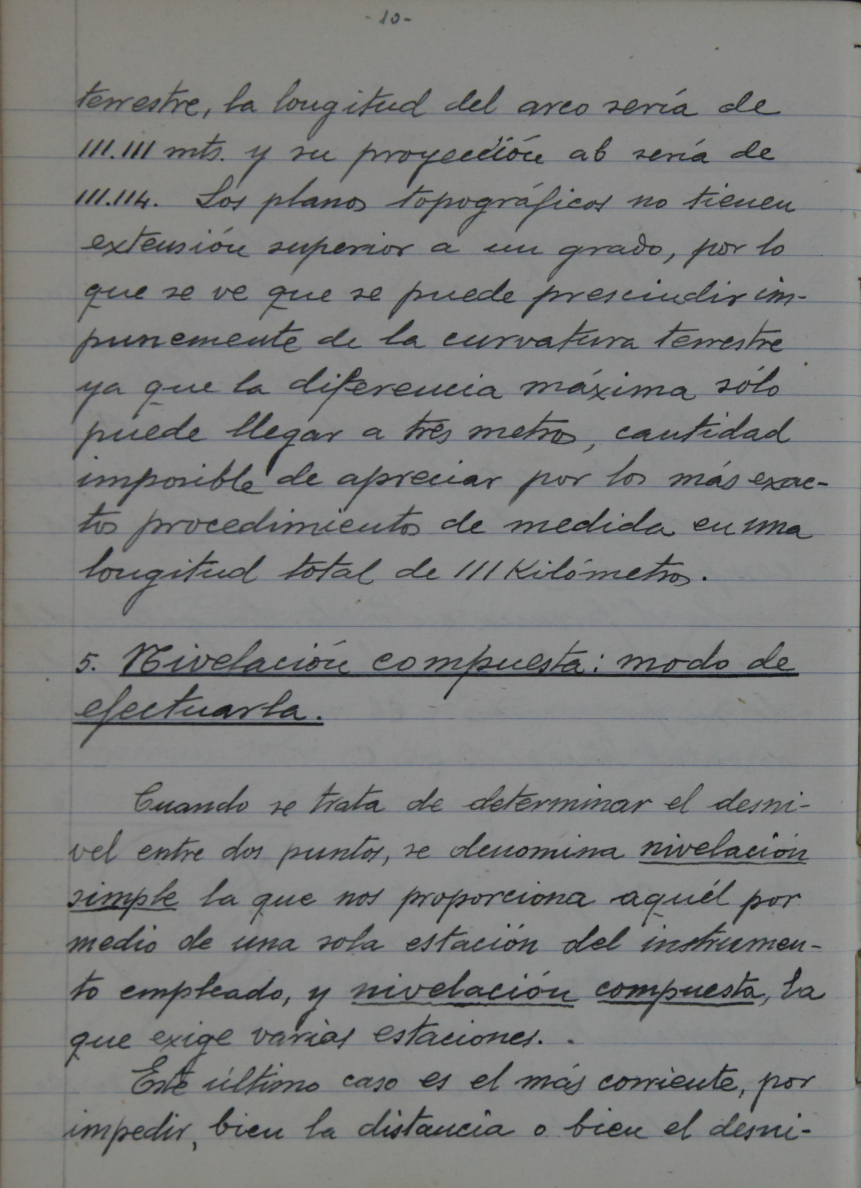 -10-
terrestre, la longitud del arco sería de
111.111 mts. y su proyección ab sería de
111.114. Los planos topográficos no tienen
extensión superior a un grado, por lo
que se ve que se puede prescindir im-
punemente de la curvatura terrestre
ya que la diferencia máxima sólo
puede llegar a tres metros, cantidad
imposible de apreciar por los más exac-
tos procedimientos de medida en una
longitud total de 111 Kilómetros.
5. Nivelación compuesta: modo de
efectuarla.
Cuando se trata de determinar el desni-
vel entre dos puntos, se denomina nivelación
simple la que nos proporciona aquél por
medio de una sola estación del instrumen-
to empleado, y nivelación compuesta, la
que exige varias estaciones.
Este último caso es el más corriente, por
impedir, bien la distancia o bien el desni-